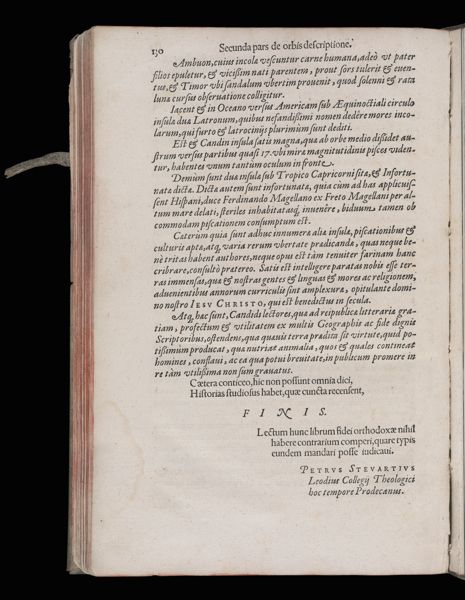 130 Secunda pars de orbis descriptione.
Ambuon, cuius incola vescuntur carne humana, adeò vt pater
filios epuletur, & vicißim nati parentem, prout sors tulerit & euen-
tus, & Timor vbi sandalum vbertim prouenit, quod solenni & rata
luna cursus obseruatione colligitur.
Iacent & in Oceano versus Americam sub Æquinoctiali circulo
insula dua Latronum, quibus nefandißimi nomen dedêre mores inco-
larum, qui furto & latrocinijs plurimum sunt dediti.
Est & Candin insula satis magna, qua ab orbe medio dißidet au-
strum versus partibus quasi 17. vbi mira magnitudinis pisces viden-
tur, habentes vnum tantùm oculum in fronte.
Demùm sunt dua insula sub Tropico Capricorni sita, & Infortu-
nata dicta. Dicta autem sunt infortunata, quia cùm ad has applicuis-
sent Hispani, duce Ferdinando Magellano ex Freto Magellani per al-
tum mare delati, steriles inhabitatasq, inuenêre, biduum tamen ob
commodam piscationem consumptum est.
Caterùm quia sunt adhuc innumera alia insula, piscationibus &
culturis apta, atq, varia rerum vbertate pradicanda, quas neque be-
nè tritas habent authores, neque opus est tàm tenuiter farinam hanc
cribrare, consultò pratereo. Satis est intelligere paratas nobis esse ter-
ras immensas, qua & nostras gentes & linguas & mores ac religionem,
aduenientibus annorum curriculis sint amplexura, opitulante domi-
no nostro IESV CHRISTO, qui est benedictus in secula.
Atq, hac sunt, Candidi lectores, qua ad reipublica litteraria gra-
tiam, profectum & vtilitatem ex multis Geographis ac fide dignis
Scriptoribus, ostendens, qua quauis terra pradita sit virtute, quid po-
tißimùm producat, qua nutriat animalia, quos & quales contineat
homines, conflaui, ac ea qua potui breuitate, in publicum promere in
re tàm vtilißima non sum grauatus.
Cætera conticeo, hîc non possunt omnia dici,
Historias studiosus habet, quæ cuncta recensent,
FINIS.
Lectum hunc librum fidei orthodoxæ nihil
habere contrarium comperi, quare typis
eundem mandari posse iudicaui.
PETRVS STEVARTIVS
Leodius Collegij Theologici
hoc tempore Prodecanus.